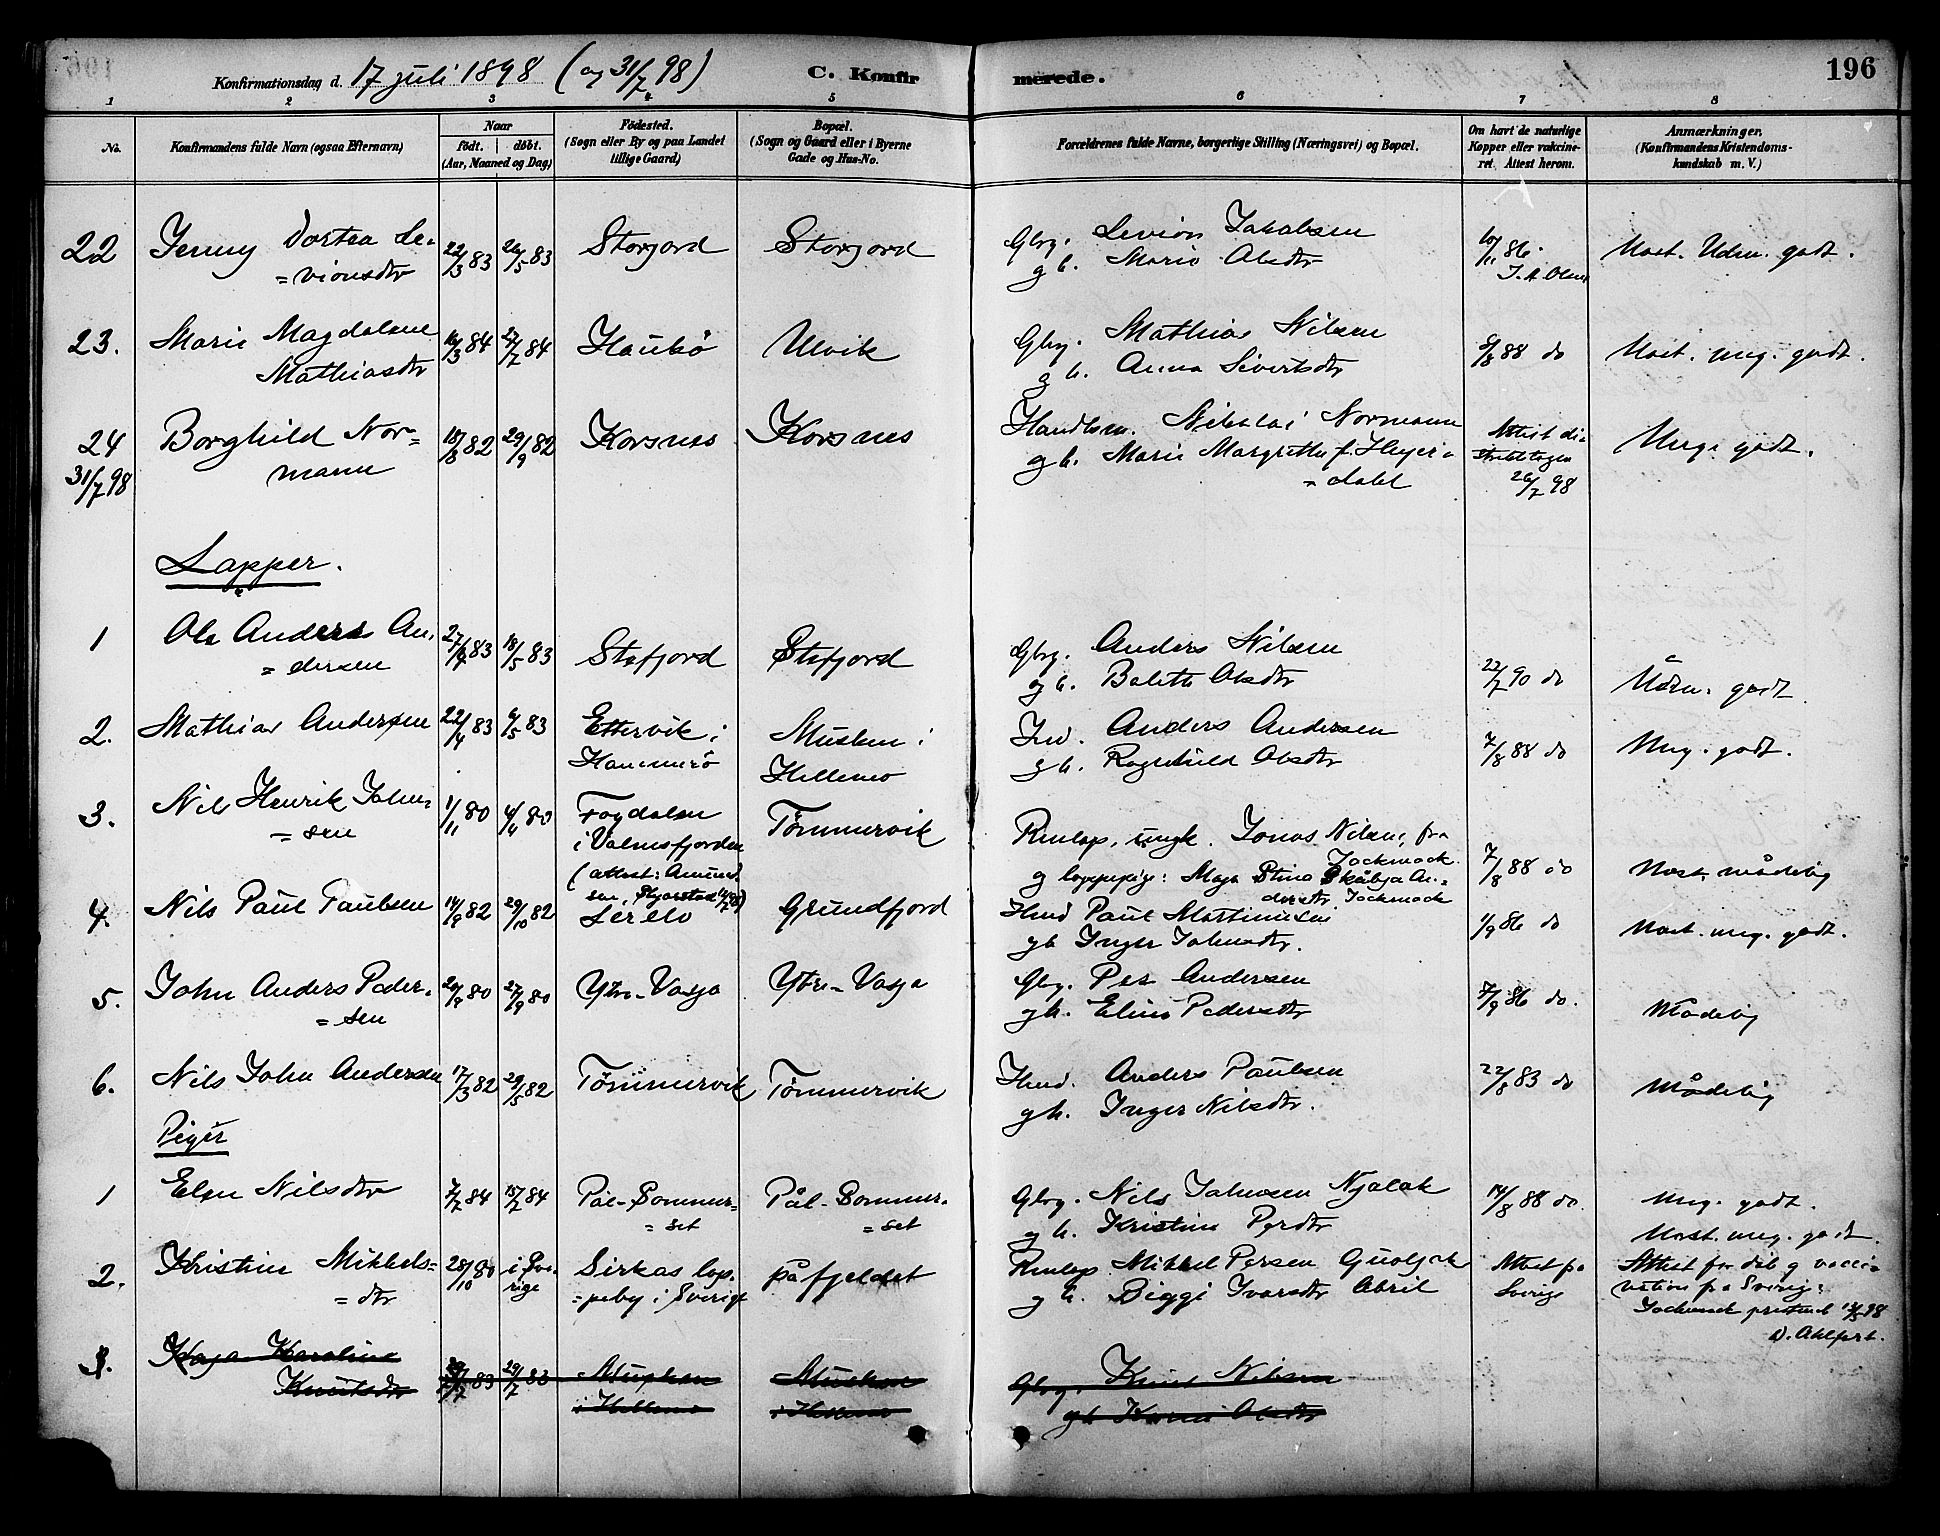 Konfirmationsdag d. 17 juli 1898 (og 31/7 98) C. Konfirmerede. 196
1 2 3 4 5 6 7 8
No. Konfirmandens fulde Navn (ogsaa Efternavn) Naar født. døbt. (Aar, Maaned og Dag) Fødested. (Sogn eller By og paa Landet tillige Gaard) Bopæl. (Sogn og Gaard eller i Byerne Gade og Hus-No. Forældrenes fulde Navne, borgerlige Stilling (Næringsvei) og Bopæl. Om havt de naturlige Kopper eller vakcineret. Attest herom. Anmærkninger. (Konfirmandens Kristendomskundskab m. V.)
22 Jenny Dortea Le= 22/3 83 26/5 83 Storjord Storjord Gbrg. Levion Jakobsen 10/11 86. Nost. Udm. godt.
=vionsdtr g h. Marie Olsdtr J. A. Olsen
23. Marie Magdalene 16/3 84 27/7 84 Haukø Ulvik Gbrg. Mathias Nilsen 8/8 88 do Nost. meg. godt.
Mathiasdtr g h. Anna Sivertsdtr
24 Borghild Nor= 18/8 82 29/9 82 Korsnes Korsnes Handlsm. Nikolai Normann Attest di= Meg. godt.
31/7 98 mann g h. Marie Margrethe f. Heyer= striktslægen
=dahl 26/7 98
Lapper.
1 Ole Anders An= 27/4 83 18/5 83 Stefjord Stefjord Gbrg. Anders Nilsen 22/7 90 do Udm. godt
=dersen g h. Balette Olsdtr
2. Mathias Andersen 22/4 83 6/5 83 Ettervik i Musken i Ind. Anders Andersen 7/8 88 do Meg. godt.
Hammerø Hellemo g h. Ragnhild Olsdtr
3. Nils Henrik John= 1/11 80 4/4 80 Fogdalen Tømmervik Renlap, ungk. Jonas Nilsen, fra 7/8 88 do Nost. mådelig
=sen i Valnesfjorden Jockmock
(attest: Amund= g lappepige: Maja Stina An=
sen, Skjerstad dersdtr, Jockmock
4. Nils Paul Paulsen 14/9 82 29/10 82 Grundfjord Ind Paul Mathisen 1/9 86 do Nost. meg. godt.
gh Inger Johnsdtr.
5. John Anders Peder= 20/8 80 27/9 80 Ytre-Vasja Ytre-Vasja Gbrg. Per Andersen 7/9 86 do. Mådelig
=sen gh. Elina Pedersdtr
6. Nils John Andersen 17/3 82 29/5 82 Tømmervik Tømmervik Ind. Anders Paulsen 22/8 83 do Mådelig
gh. Inger Nilsdtr.
Piger
1 Elen Nilsdtr 7/7 84 18/7 84 Pål-Sommer= Pål-Sommer= Gbrg. Nils Johnsen Njalak 14/8 88 do. Meg. godt.
=set =set g h. Kristine Persdtr Nost. meg. godt.
2. Kristine Mikkels= 28/10 80 i Sve= Sirkas lap= på fjeldet Renlap Mikkel Persen Attest fra Attest for dåb g vacci=
=dtr rige =peby i Sverige g h. Biggi Ivarsdtr Abril Sverige nation fra Sverige:
98
3. Kaja Karoline 83 29/7 83 Musken Musken Gbrg. Knut Nilsen
Knutsdtr i Hellemo i Hellemo gh Olsdtr